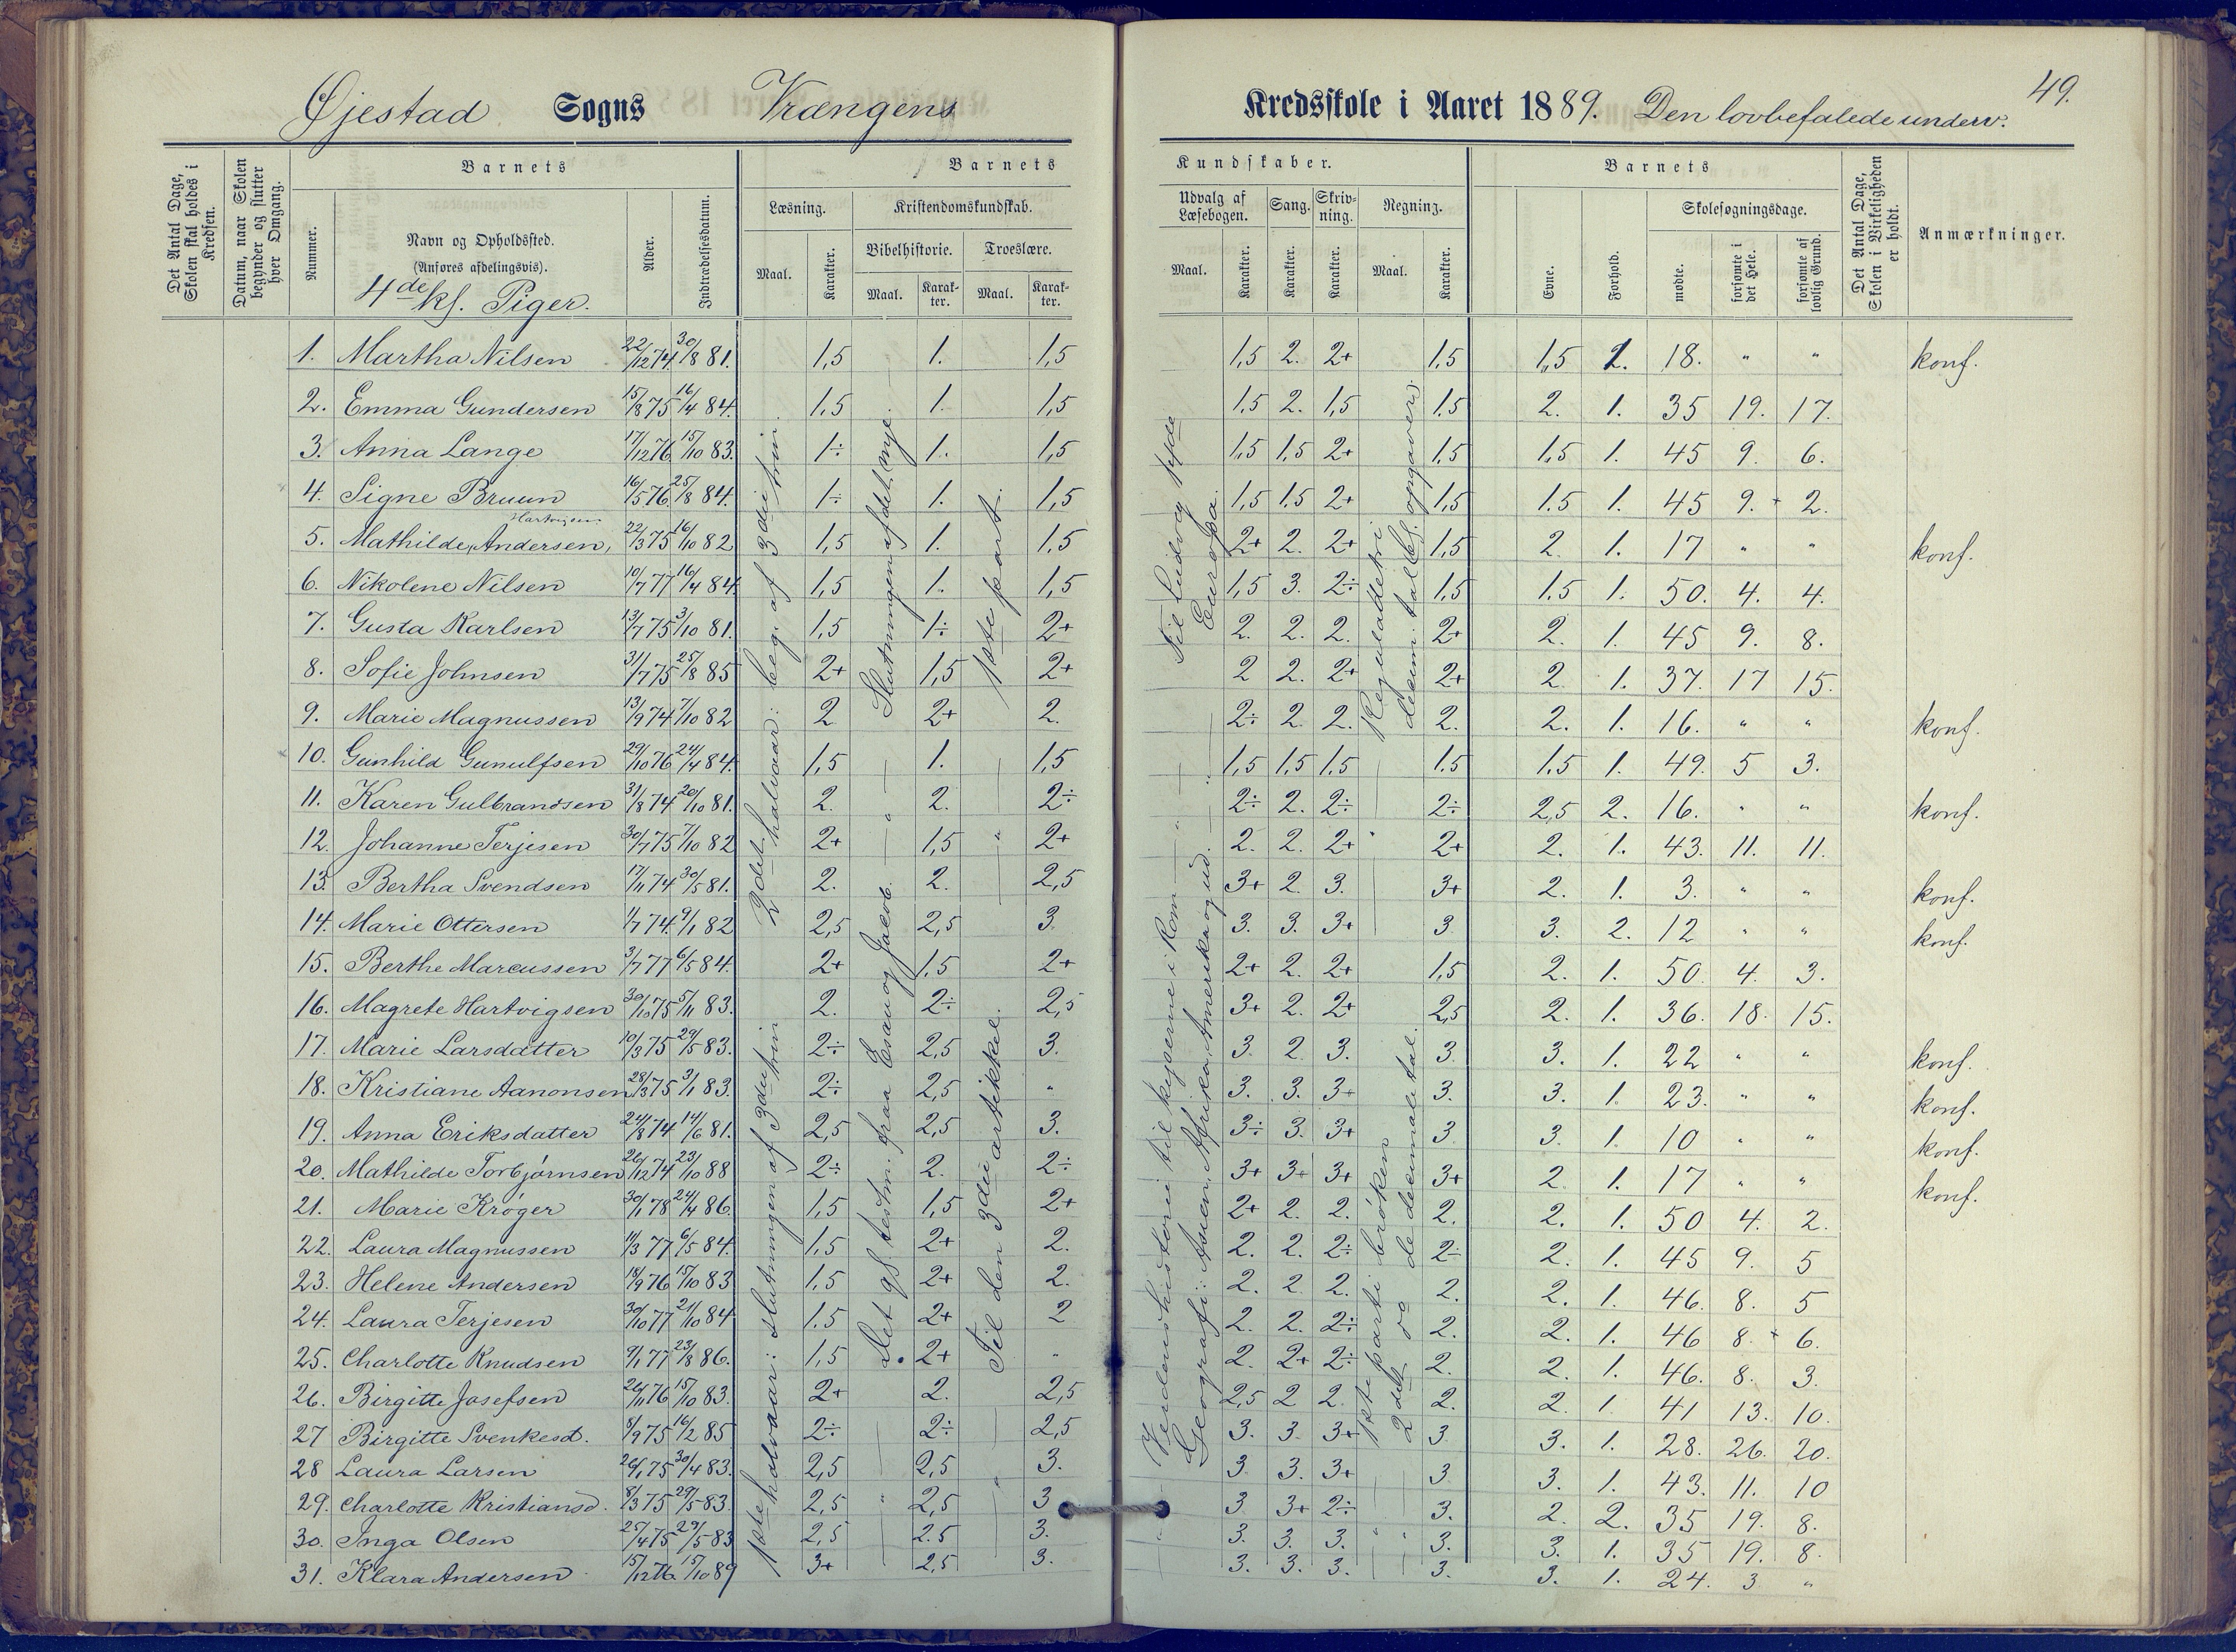 Øjestad Sogns Vrængens Kredsskole i Aaret 1889. Den lovbefalede underv. 49.
Det Antal Dage, Skolen skal holdes i Kredsen.
Datum, naar Skolen begynder og slutter hver Omgang.
Nummer.
Barnets
Navn og Opholdssted.
(Anføres afdelingsvis).
4de kl. Piger.
Alder.
Indtrædelsesdatum.
Barnets Kundskaber.
Læsning. Maal. Karakter.
Kristendomskundskab.
Bibelhistorie. Maal. Karakter.
Troeslære. Maal. Karakter.
Udvalg af Læsebogen. Maal. Karakter.
Sang. Karakter.
Skrivning. Karakter.
Regning. Maal. Karakter.
Barnets
Evne. Forhold.
Skolesøgningsdage.
mødte. forsømte i det Hele. forsømte af lovlig Grund.
Det Antal Dage, Skolen i Virkeligheden er holdt.
Anmærkninger.
1. Martha Nilsen 22/12 74. 30/8 81. 1,5 1. 1,5 1,5 2. 2+ 1,5 1,5 1. 18. " " konf.
2. Emma Gundersen 15/8 75 16/4 84. 1,5 1. 1,5 1,5 2. 1,5 1,5 2. 1. 35 19. 17.
3. Anna Lange 17/12 76 15/10 83. 1÷ 1. 1,5 1,5 1,5 2+ 1,5 1,5 1. 45 9. 6.
4. Signe Bruun 16/5 76 25/8 84. 1÷ 1. 1,5 1,5 1,5 2+ 1,5 1.5 1. 45 9. 2.
Hartvigsen
5. Mathilde Andersen, 22/3 75 16/10 82 1,5 1. 1,5 2+ 2. 2+ 1,5 2. 1. 17 " " konf.
6. Nikolene Nilsen 10/7 77 16/4 84 1,5 1. 1,5 1,5 3. 2÷ 1,5 1.5 1. 50. 4. 4.
7. Gusta Karlsen 13/7 75 3/10 81. 1,5 1÷ 2+ 2. 2. 2. 2+ 2. 1. 45 9. 8.
8. Sofie Johnsen 31/7 75 25/8 85 2+ 1,5 2+ 2 2. 2+ 2+ 2. 1. 37. 17 15.
9. Marie Magnussen 13/9 74 7/10 82 2 2+ 2. 2÷ 2. 2. 2. 2. 1. 16. " " konf.
10. Gunhild Gunulfsen 29/10 76 24/4 84. 1,5 1. 1,5 1,5 1,5 1,5 1.5 1.5 1. 49. 5 3.
11. Karen Gulbrandsen 31/8 74 20/10 81. 2. 2. 2÷ 2÷ 2. 2÷ 2÷ 2,5 2. 16. " " konf.
12. Johanne Terjesen 30/7 75 7/10 82 2+ 1,5 2+ 2. 2. 2+ 2+ 2. 1. 43. 11. 11.
13. Bertha Svendsen 17/11 74 30/5 81. 2. 2. 2,5 3+ 2. 3. 3+ 2. 1. 3. " " konf.
14. Marie Ottersen 1/7 74. 9/1 82 2,5 2,5 3. 3. 3. 3+ 3 3. 2. 12 " " konf.
15. Berthe Marcussen 3/7 77 6/5 84. 2+ 1,5 2+ 2+ 2. 2+ 1,5 2. 1. 50. 4. 3.
16. Magrete Hartvigsen 30/10 75 5/11 83. 2. 2÷ 2,5 3+ 2. 2+ 2,5 2. 1. 36. 18. 15.
17. Marie Larsdatter 10/3 75 29/5 83. 2÷ 2,5 3. 3. 2. 3. 3. 3. 1. 22 " " konf.
18. Kristiane Aanonsen 28/3 75 3/1 83. 2÷ 2,5 " 3. 3. 3+ 3. 3. 1. 23. " " konf.
19. Anna Eriksdatter 24/8 74 14/6 81. 2,5 2,5 3. 3÷ 3. 3+ 3. 3. 1. 10 " " konf.
20. Mathilde Torbjørnsen 26/12 74 23/10 88 2÷ 2. 2÷ 3+ 3+ 3+ 3+ 2. 1. 17 " " konf.
21. Marie Krøger 30/1 78 24/4 86. 1,5 1,5 2+ 2+ 2. 2. 2. 2. 1. 50 4. 2.
22. Laura Magnussen 11/3 77 6/5 84. 1,5 2+ 2. 2. 2. 2÷ 2÷ 2. 1. 45 9. 5
23. Helene Andersen 18/9 76 15/10 83 1,5 2+ 2. 2. 2. 2. 2. 2. 1. 46. 8. 5
24. Laura Terjesen 30/10 77 21/10 84 1.5 2+ 2 2. 2. 2÷ 2. 2. 1. 46 8. 6.
25. Charlotte Knudsen 9/1 77 23/8 86. 1,5 2+ " 2. 2+ 2÷ 2. 2. 1. 46. 8. 3.
26. Birgitte Josefsen 26/11 76 15/10 83. 2+ 2. 2,5 2,5 2 2. 2. 2. 1. 41 13. 10.
27 Birgitte Svenkesd. 8/9 75 16/2 85 2÷ 2÷ 2,5 3. 3. 3+ 3 3. 1. 28. 26. 20.
28 Laura Larsen 26/1 75 30/4 83. 2,5 2,5 3. 3 3. 3+ 3 3. 1. 43. 11. 10
29. Charlotte Kristiansd. 8/3 75 29/5 83. 2,5 2,5 3 3 3+ 2÷ 3. 2. 2. 35 19. 8.
30. Inga Olsen 25/4 75 29/5 83 2,5 2.5 3. 3. 3. 3. 3. 3. 1. 35 19. 8.
31. Klara Andersen 15/12 76. 15/10 89 3+ 2,5 3. 3. 3. 3. 3. 3. 1. 24. 3 "
1ste halvaar: slutningen af 3die trin
2det halvaar: beg. af 3die trin
Det gl. testm. fraa Esau og Jacob.
Slutningen af det nye
Til den 3die artikkel.
1ste part.
Verdenshistorie til kejserne i Rom
Til Ludvig
Geografi: Asien, Afrika, Amerika og ud.
Europa.
1ste parti brøken
2det do decimaltal.
Reguladetri
decimaltal opgaver